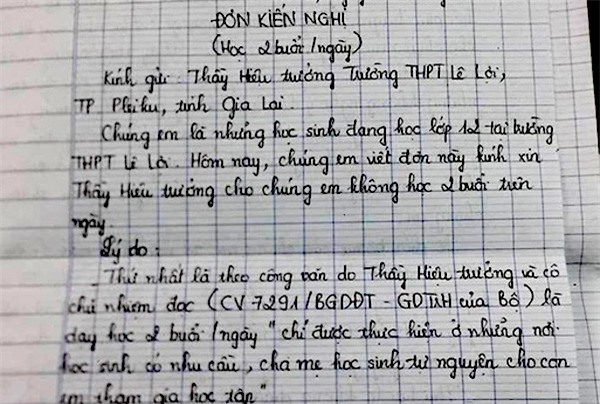 ĐƠN KIẾN NGHỊ
(Học 2 buổi /ngày)
Kính gửi: Thầy Hiệu trưởng Trường THPT Lê Lợi,
TP Pleiku, tỉnh Gia Lai.
Chúng em là những học sinh đang học lớp 12 tại trường
THPT Lê Lợi. Hôm nay, chúng em viết đơn này kính xin
Thầy Hiệu trưởng cho chúng em không học 2 buổi trên
ngày.
Lý do:
_Thứ nhất là theo công văn do Thầy Hiệu trưởng và cô
chủ nhiệm đọc (CV 7291/BGDĐT - GDTrH của Bộ) là
dạy học 2 buổi /ngày "chỉ được thực hiện ở những nơi
học sinh có nhu cầu, cha mẹ học sinh tự nguyện cho con
em tham gia học tập"